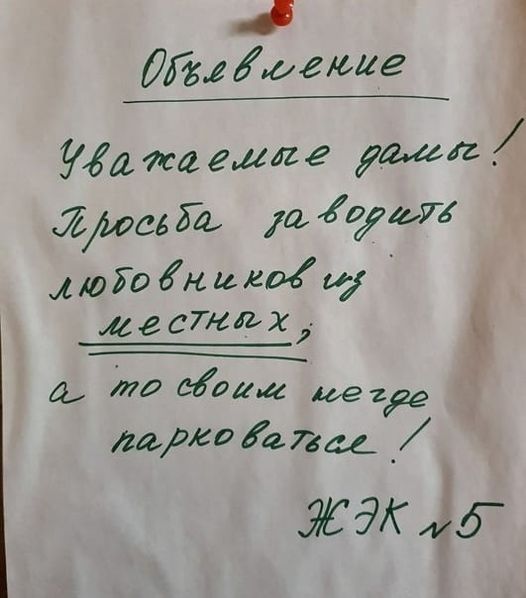 Объявление
Уважаемые дамы!
Просьба заводить
любовников из
местных,
а то своим негде
парковаться!
ЖЭК №5